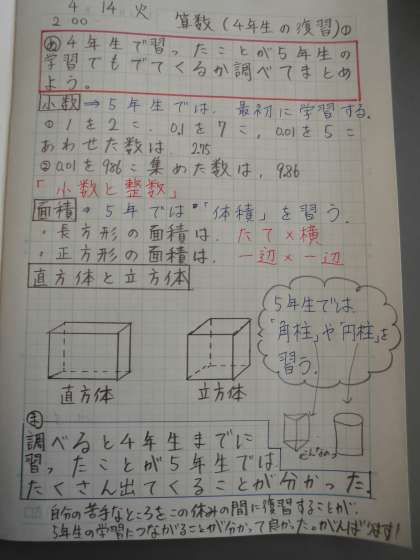 4 14 火 算数(4年生の復習)①
200
め 4年生で習ったことが5年生の
学習でもでてくるか調べてまとめ
よう。
小数 ⇒ 5年生では、最初に学習する。
① 1を2こ、0.1を7こ、0.01を5こ
あわせた数は 2.75
② 0.01を986こ集めた数は、9.86
「小数と整数」
面積 ⇒ 5年では「体積」を習う。
・長方形の面積は、たて×横
・正方形の面積は、一辺×一辺
直方体と立方体
5年生では
「角柱」や「円柱」を
習う。
直方体 立方体
こんなの
ま
調べると4年生までに
習ったことが5年生では
たくさん出てくることが分かった。
自分の苦手なところをこの休みの間に復習することが、
5年生の学習につながることが分かって良かった。がんばります!